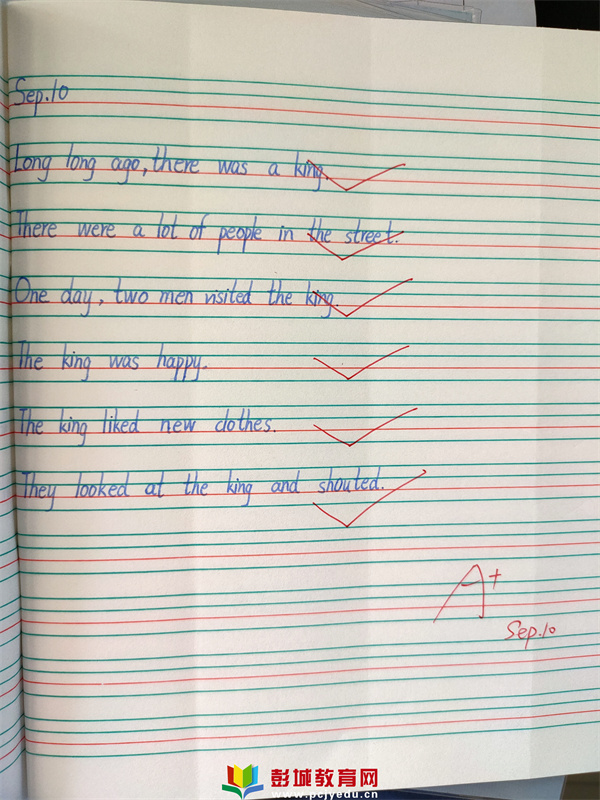 Sep.10
Long long ago, there was a king.
There were a lot of people in the street.
One day, two men visited the king.
The king was happy.
The king liked new clothes.
They looked at the king and shouted.
A+
Sep.10
彭城教育网
www.pcjyedu.cn